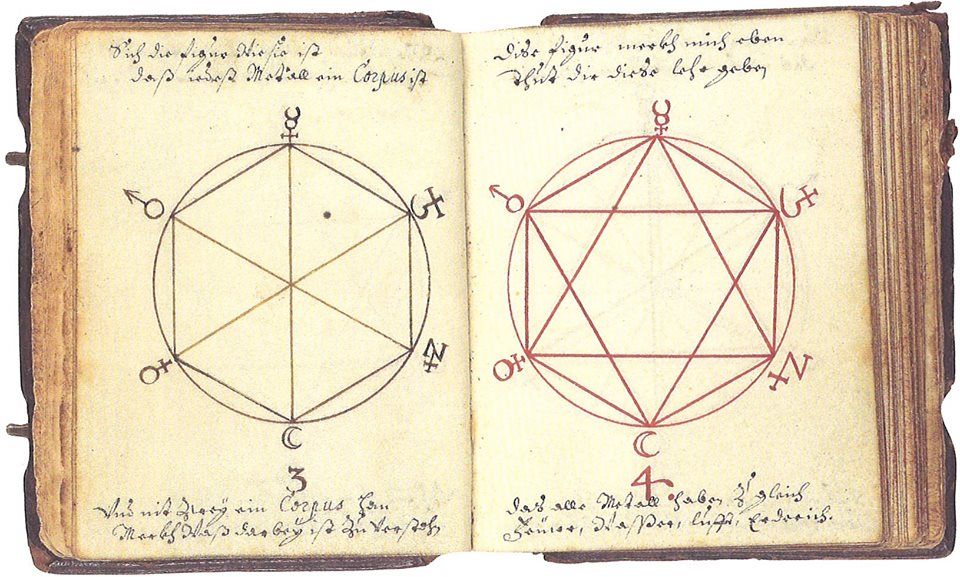 Sich die figur Wie sie ist
daß iedeß Metall ein Corpus ist
3
Und nit zweÿ ein Corpus han
Merkh Waß darbeÿ ist zu verstehn
Dise figur merkh mich eben
Thut dir diese lehr geben
4.
das alle Metall haben zu gleich
Feüwr, Wasser, lufft, Erderich.